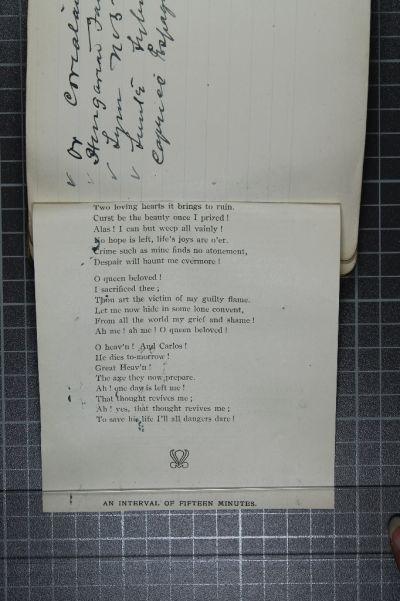 Or Coriolan
Hungarian
Sym No 3
Caprice Espag
Two loving hearts it brings to ruin.
Curst be the beauty once I prized!
Alas! I can but weep all vainly!
No hope is left, life's joys are o'er.
Crime such as mine finds no atonement,
Despair will haunt me evermore!
O queen beloved!
I sacrificed thee;
Thou art the victim of my guilty flame.
Let me now hide in some lone convent,
From all the world my grief and shame!
Ah me! ah me! O queen beloved!
O heav'n! And Carlos!
He dies to-morrow!
Great Heav'n!
The axe they now prepare.
Ah! one day is left me!
That thought revives me;
Ah! yes, that thought revives me;
To save his life I'll all dangers dare!
AN INTERVAL OF FIFTEEN MINUTES.